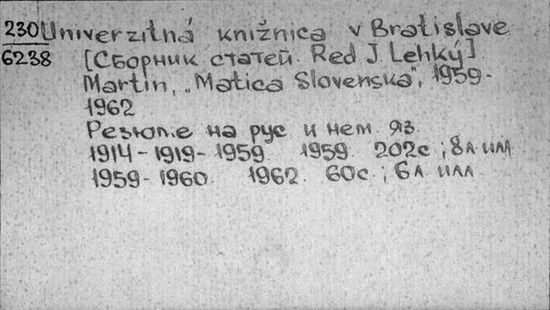 230 Univerzitná knižnica v Bratislave
6238 [Сборник статей. Red J Lehký]
Martin, „Matica Slovenska", 1959-
1962
Резюме на рус и нем. яз.
1914-1919-1959. 1959. 202с; 8л илл
1959-1960. 1962. 60с.; 6л илл